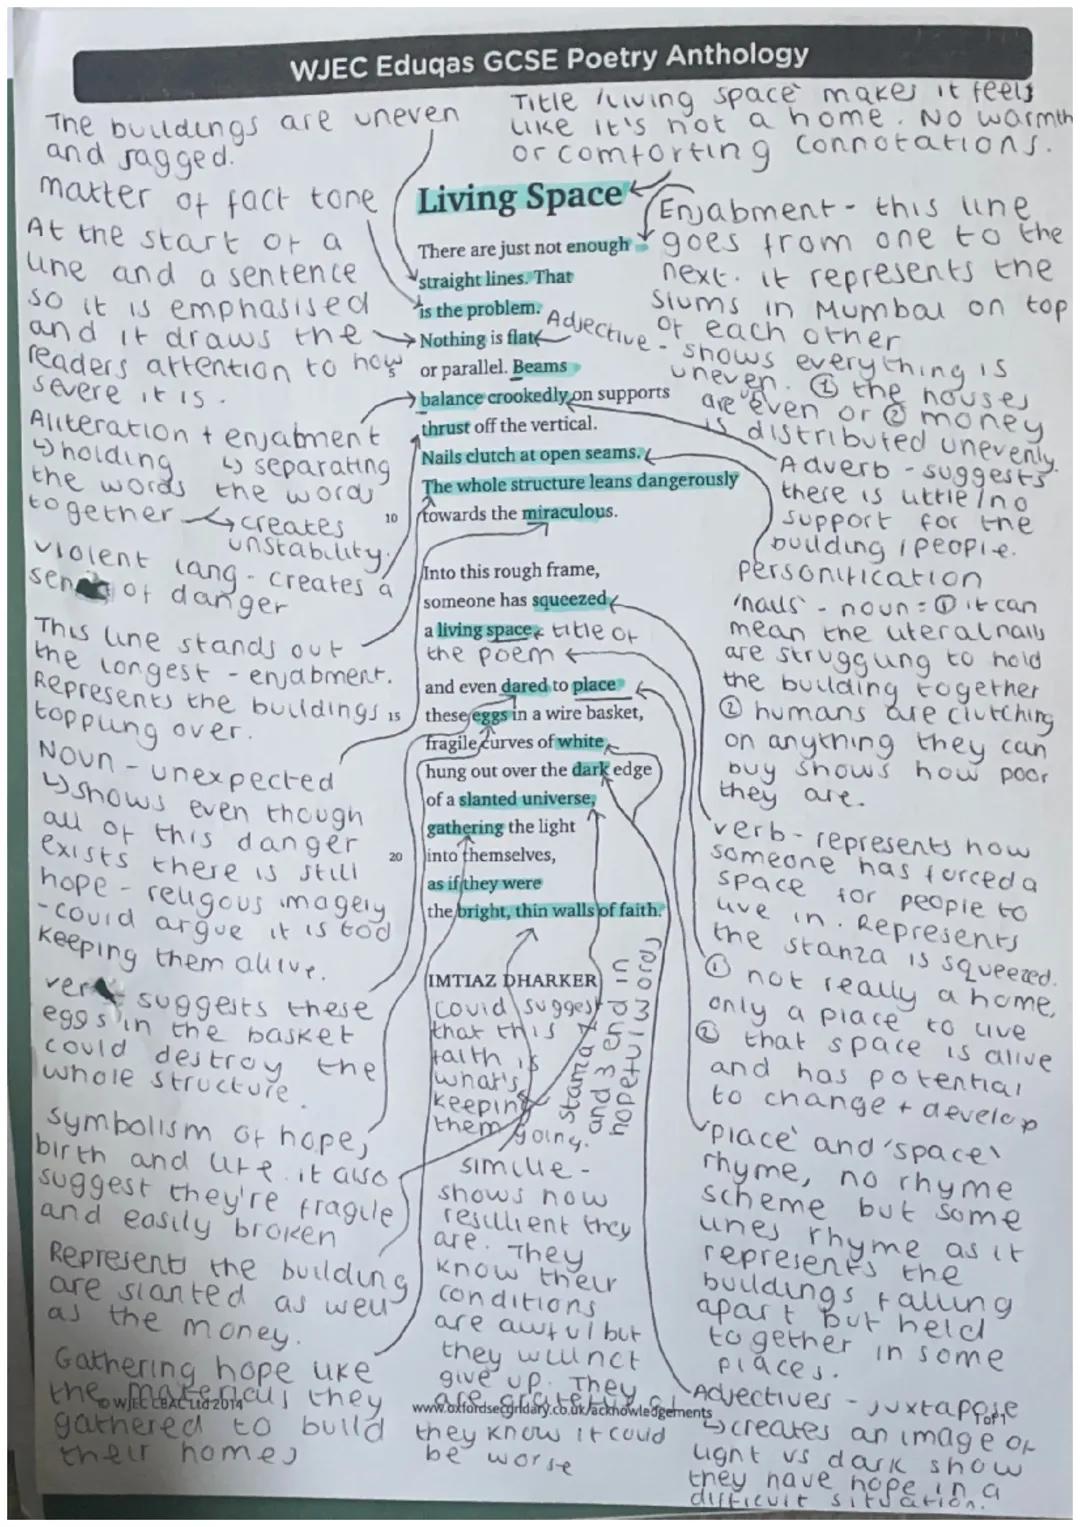 WJEC Eduqas GCSE Poetry Anthology
The buildings are uneven
and jagged.
matter of fact tone
At the start of a
line and a sentence
so it is emphasised
and it draws the
readers attention to how
severe it is.
Aliteration + enjabment
↳holding ↳ separating
the words the words
together ↳creates
unstability.
violent lang - creates a
of danger
This line stands out
the longest - enjabment.
Represents the buildings
toppling over.
Noun - unexpected
↳shows even though
all of this danger
exists there is still
hope - religous imagery
-could argue it is God
keeping them alive.
suggests these
eggs in the basket
could destroy the
whole structure.
symbolism of hope,
birth and life. it also
suggest they're fragile
and easily broken
Represents the building
are slanted as well
as the money.
Gathering hope like
the materials they
gathered to build
their homes
Title 'living space' makes it feels
like it's not a home. No warmth
or comforting connotations.
Living Space
There are just not enough
straight lines. That
is the problem.
Nothing is flat
or parallel. Beams
balance crookedly on supports
thrust off the vertical.
Nails clutch at open seams.
The whole structure leans dangerously
10 towards the miraculous.
Into this rough frame,
someone has squeezed
a living space title of
the poem
and even dared to place
15 these eggs in a wire basket,
fragile curves of white
hung out over the dark edge
of a slanted universe,
gathering the light
20 into themselves,
as if they were
the bright, thin walls of faith.
IMTIAZ DHARKER
could suggest
that this
faith is
what's
keeping
them going.
stanza 2
and 3 end in
hopeful words
simile -
shows how
resilient they
are. They
know their
conditions
are awful but
they will not
give up. They
are grateful as
they know it could
be worse
Enjabment - this line
goes from one to the
next. it represents the
slums in Mumbai on top
of each other
Adjective - shows everything is
uneven. ① the houses
are even or ② money
is distributed unevenly.
Adverb - suggests
there is little/no
support for the
building / people.
personification
'nails' - noun = ① it can
mean the literal nails
are struggling to hold
the building together
② humans are clutching
on anything they can
buy shows how poor
they are.
verb - represents how
someone has forced a
space for people to
live in. Represents
the stanza is squeezed.
① not really a home,
only a place to live
② that space is alive
and has potential
to change + develop
'place' and 'space'
rhyme, no rhyme
scheme but some
lines rhyme as it
represents the
buildings falling
apart but held
together in some
places.
Adjectives - juxtapose
↳creates an image of
light vs dark show
they have hope in a
difficult situation.
© WJEC CBAC Ltd 2014
www.oxfordsecondary.co.uk/acknowledgements
1 of 1